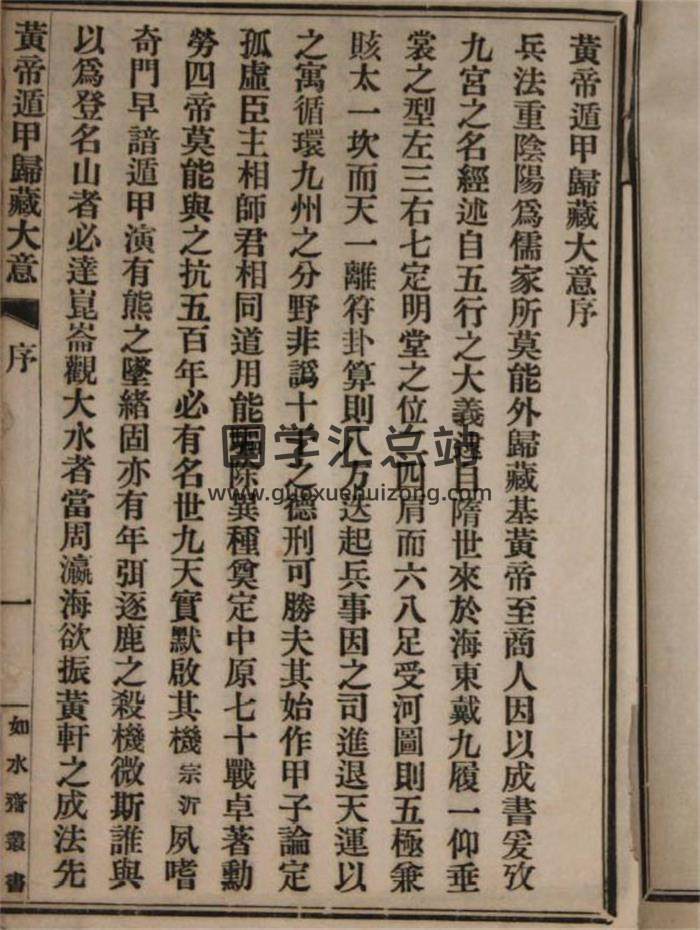 黃帝遁甲歸藏大意序
兵法重陰陽爲儒家所莫能外歸藏基黃帝至商人因以成書爰攷
九宮之名經述自五行之大義建自隋世來於海東戴九履一仰垂
裳之型左三右七定明堂之位二四肩而六八足受河圖則五極兼
賅太一坎而天一離符卦算則八方迭起兵事因之司進退天運以
之寓循環九州之分野非譌十干之德刑可勝夫其始作甲子論定
孤虛臣主相師君相同道用能驅除異種奠定中原七十戰卓著勳
勞四帝莫能與之抗五百年必有名世九天實默啟其機宗沂夙嗜
奇門早諳遁甲演有熊之墜緒固亦有年弭逐鹿之殺機微斯誰與
以爲登名山者必達崑崙觀大水者當周瀛海欲振黃軒之成法先
黃帝遁甲歸藏大意 序 一 如水齋叢書
国学汇总站
www.guoxuehuizong.com